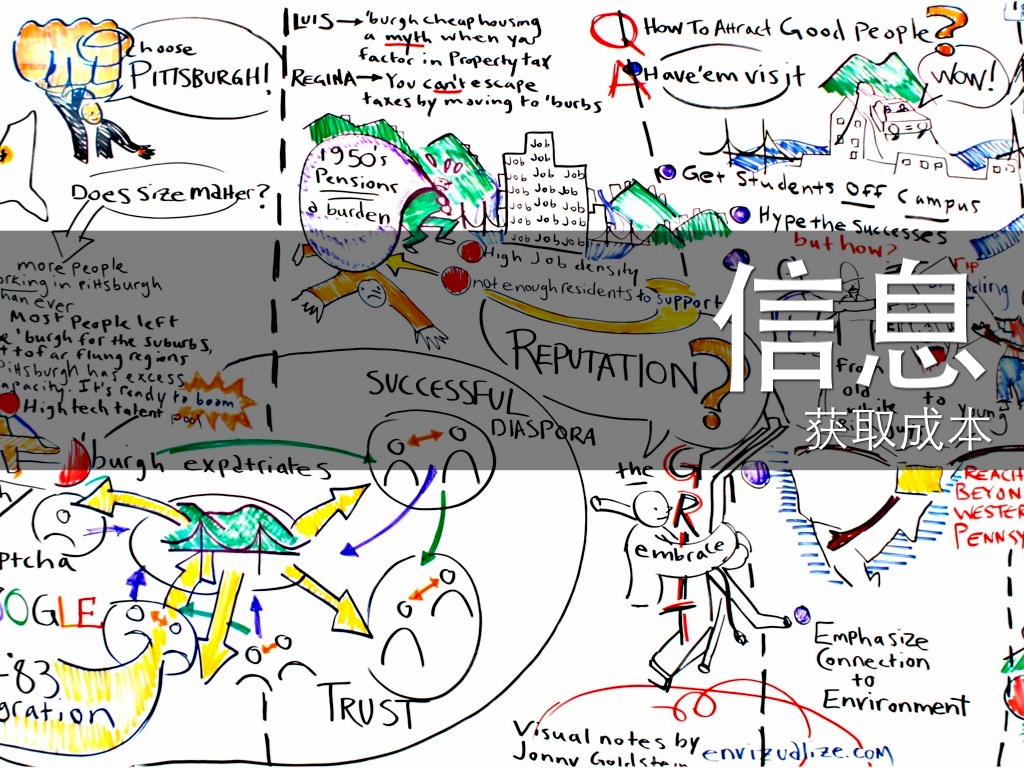 Choose
PITTSBURGH!
Does size matter?
more people
working in Pittsburgh
than ever
Most People left
'burgh for the suburbs,
far flung regions
Pittsburgh has excess
capacity. It's ready to boom
High tech talent pool
LUIS → 'burgh cheap housing
a myth when you
factor in Property tax
REGINA → You can't escape
taxes by moving to 'burbs
1950's
Pensions
a burden
Job
Job Job
Job Job Job
Job Job Job
Job Job Job
Job Job Job
Job Job Job
High Job density
not enough residents to support
Q How To Attract Good People?
A Have 'em visit
WOW!
Get Students Off Campus
Hype the Successes
but how?
信息
获取成本
from
old
to
young
REPUTATION?
SUCCESSFUL
DIASPORA
'burgh expatriates
OOGLE
'83
TRUST
the
GRIT
embrace
REACH
BEYON
WESTER
PENNSY
Emphasize
Connection
to
Environment
Visual notes by envizualize.com
Jonny Goldstein